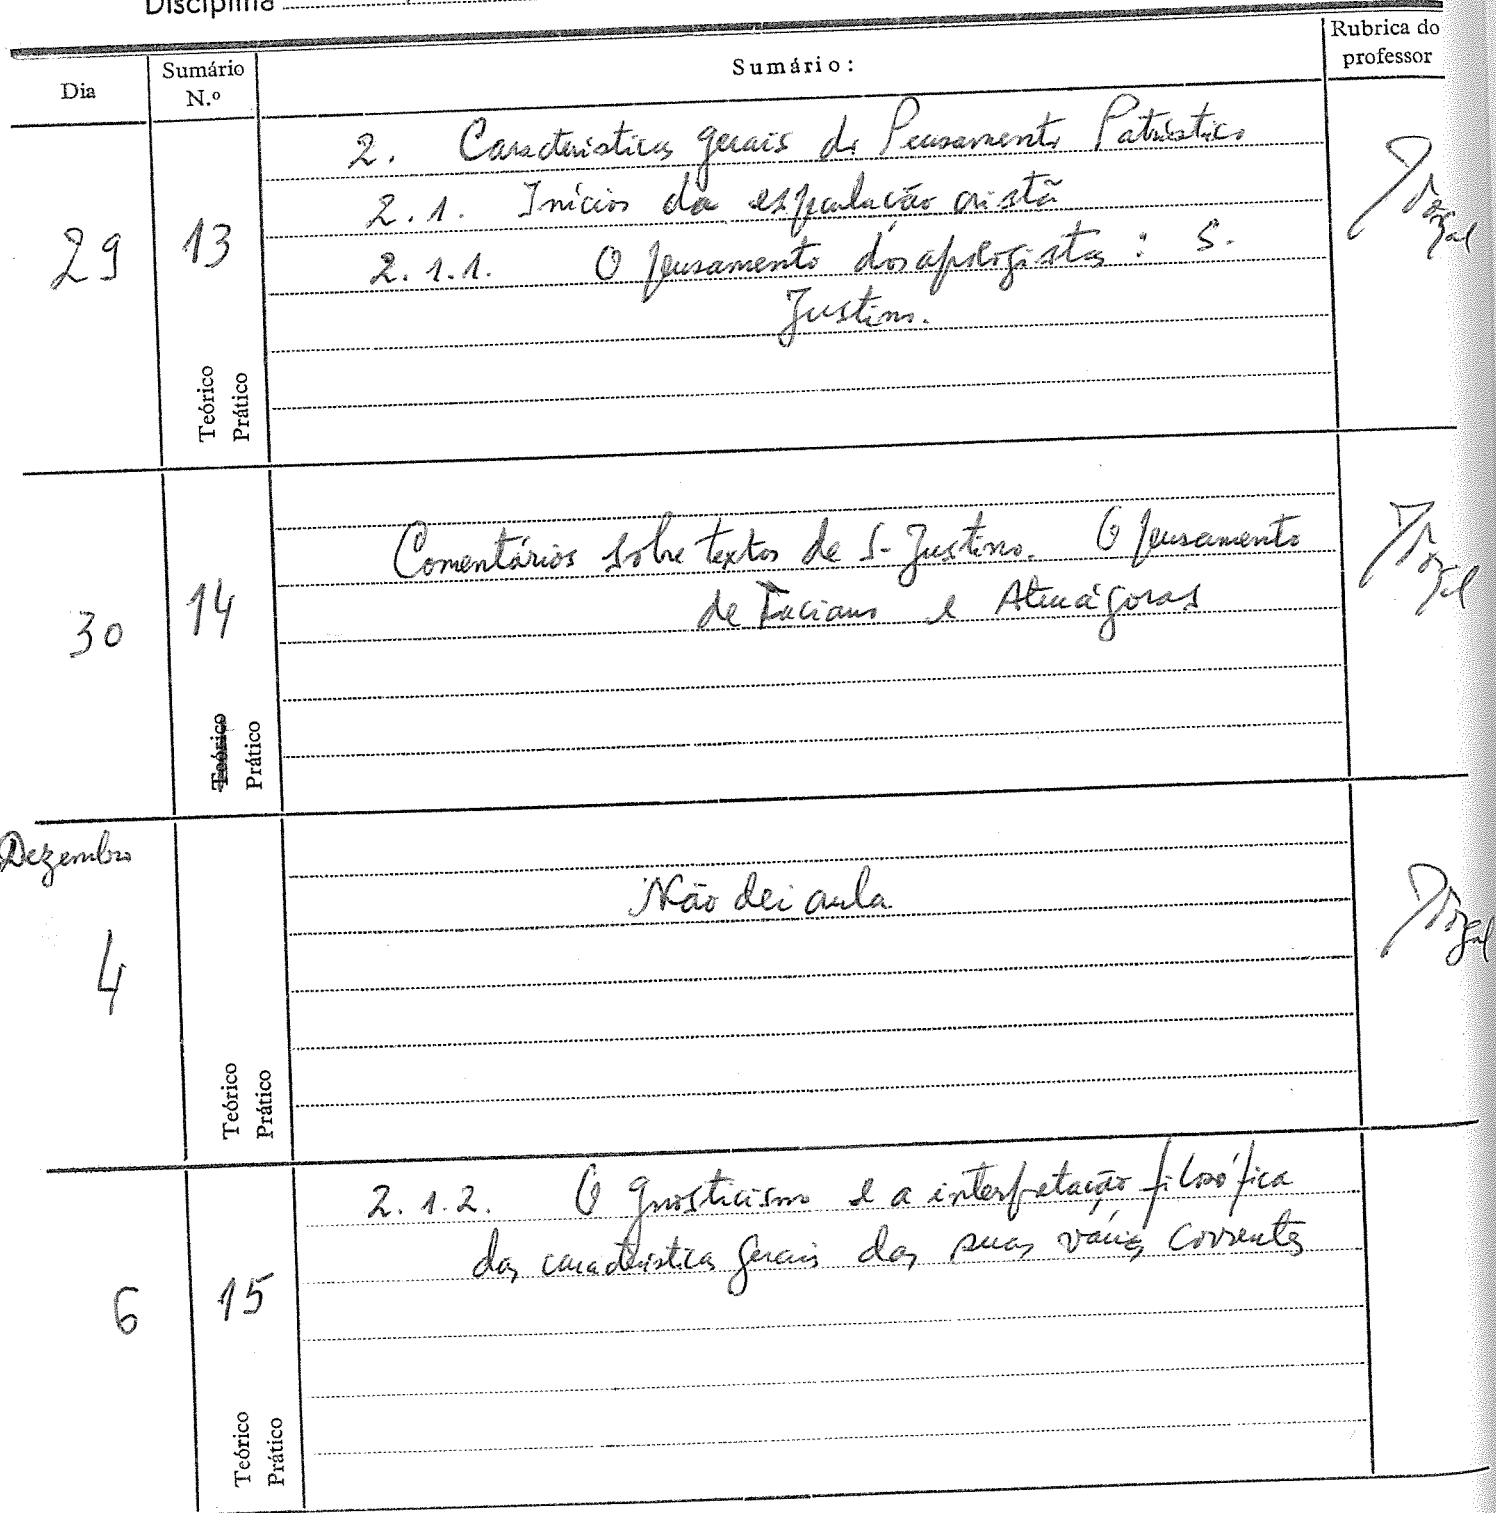 Disciplina
Dia
Sumário N.º
Sumário:
Rubrica do professor
29
13
2. Características gerais do Pensamento Patrístico
2.1. Inícios da especulação cristã
2.1.1. O pensamento dos apologistas: S.
Justino.
Teórico
Prático
30
14
Comentários sobre textos de S. Justino. O pensamento
de Taciano e Atenágoras
Teórico
Prático
Dezembro
4
Não dei aula
Teórico
Prático
6
15
2.1.2. O gnosticismo e a interpretação filosófica
das características gerais das suas várias correntes
Teórico
Prático